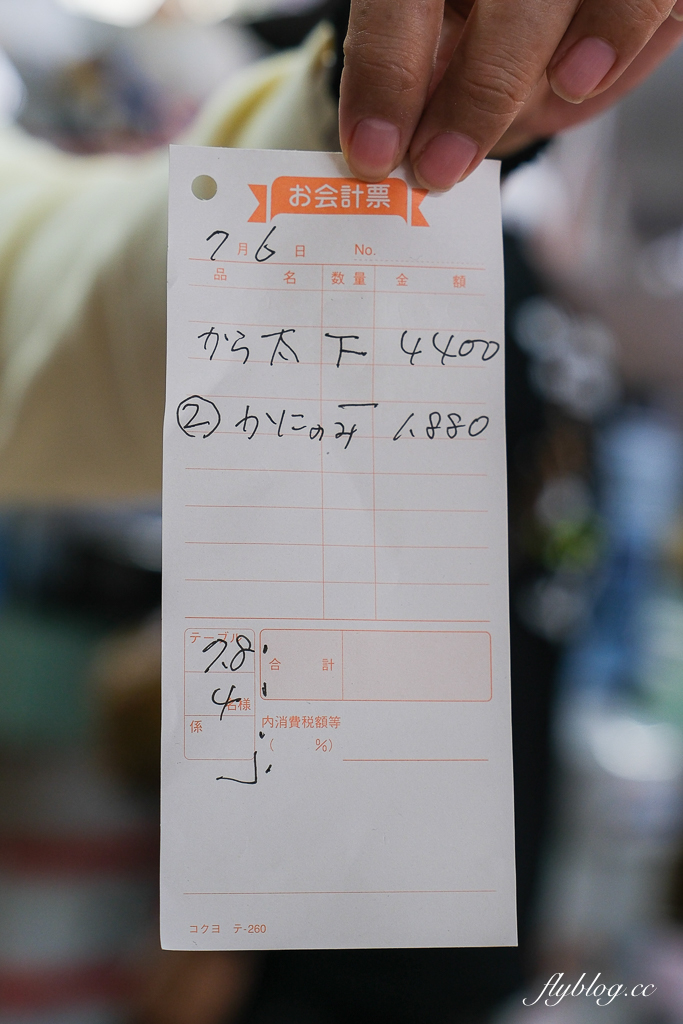 お会計票
7月6日 No.
品名 数量 金額
から太 下 4400
② かにのみ 一 1.880
テーブル 7.8
合計
4名様
係
内消費税額等
( %)
コクヨ テ-260
flyblog.cc